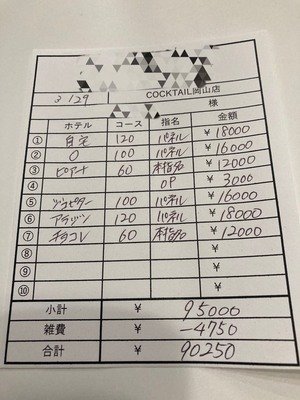 COCKTAIL岡山店
3/29
様
ホテル コース 指名 金額
① 自宅 120 パネル ¥18000
② O 100 パネル ¥16000
③ ピアノ 60 本指名 ¥12000
④ OP ¥3000
⑤ 100 パネル ¥16000
⑥ アラジン 120 パネル ¥18000
⑦ チョコレ 60 本指名 ¥12000
⑧
⑨
⑩
小計 ¥ 95000
雑費 ¥ -4750
合計 ¥ 90250